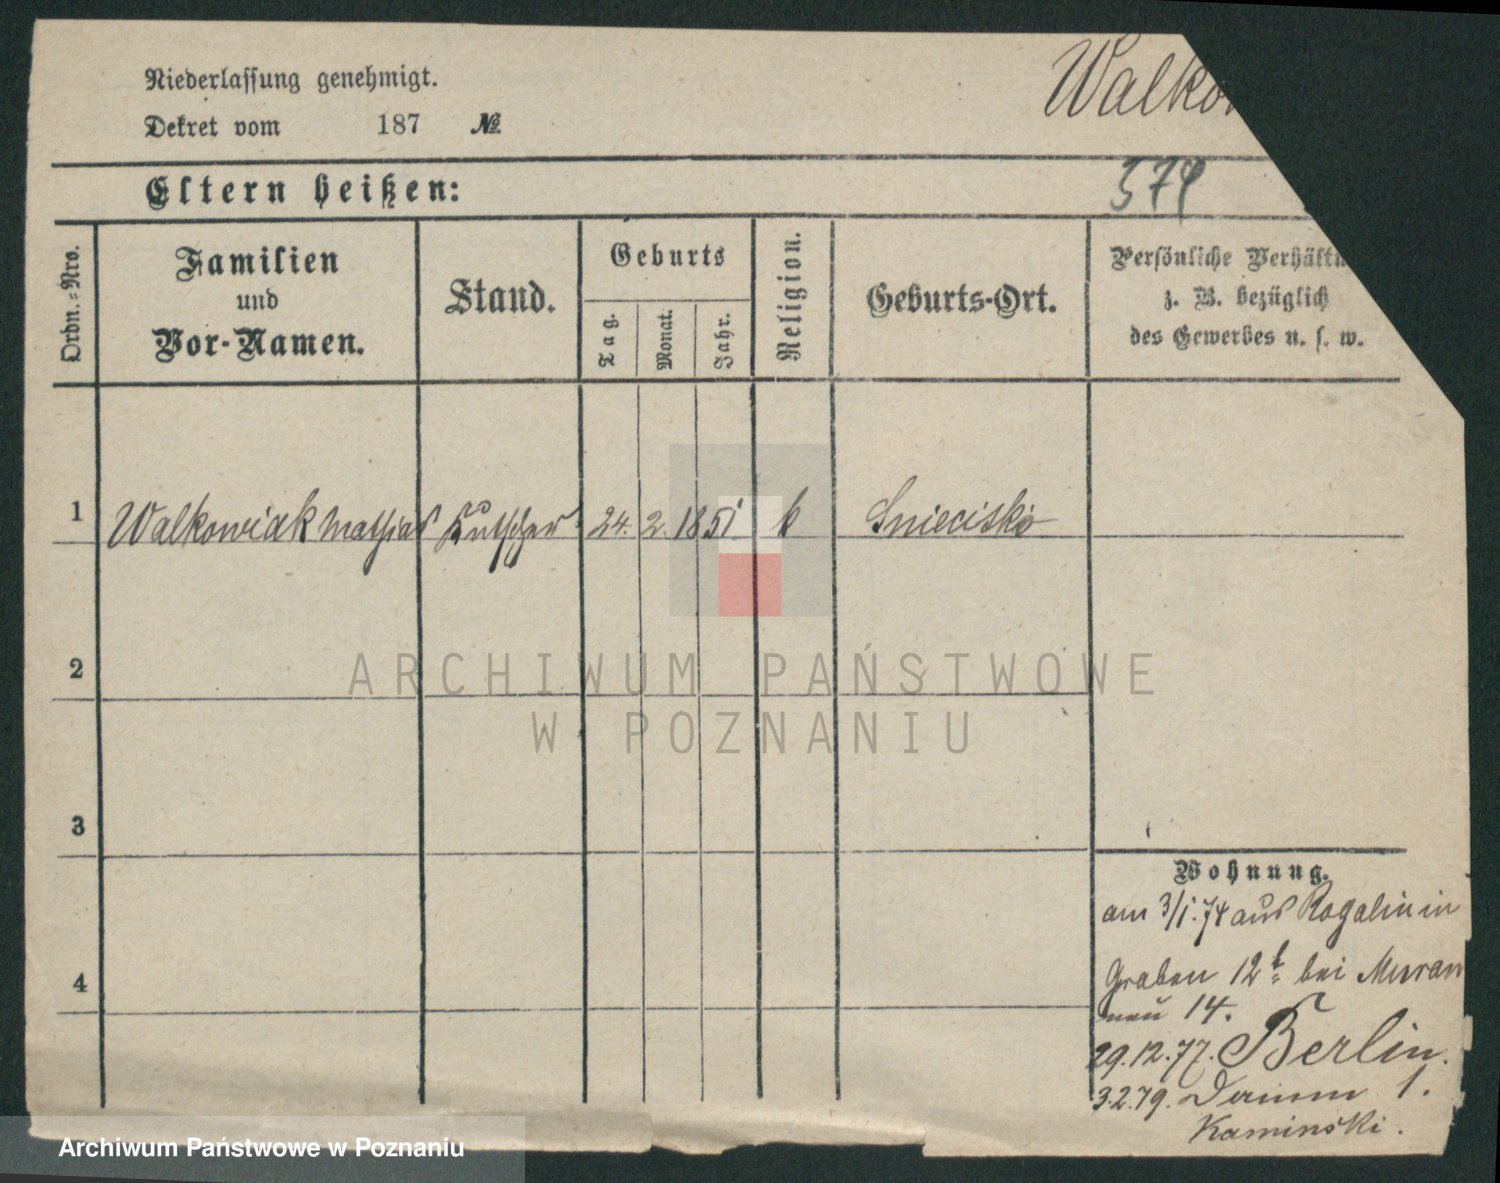 Niederlassung genehmigt.
Walkow
Dekret vom 187 №
Eltern heißen:
574
Ordn.=Nro.
Familien
und
Vor-Namen.
Stand.
Geburts
Tag.
Monat.
Jahr.
Religion.
Geburts-Ort.
Persönliche Verhältn
z. B. bezüglich
des Gewerbes u. s. w.
1 Walkowiak Mathias Kutscher 24. 2. 1851 k Sniecisko
2
ARCHIWUM PAŃSTWOWE
W POZNANIU
3
Wohnung.
am 3/1. 74 aus Rogalin in
4
Graben 12b bei Muran
neu 14.
29.12.77. Berlin.
3.2.79. 1.
Kaminski.
Archiwum Państwowe w Poznaniu